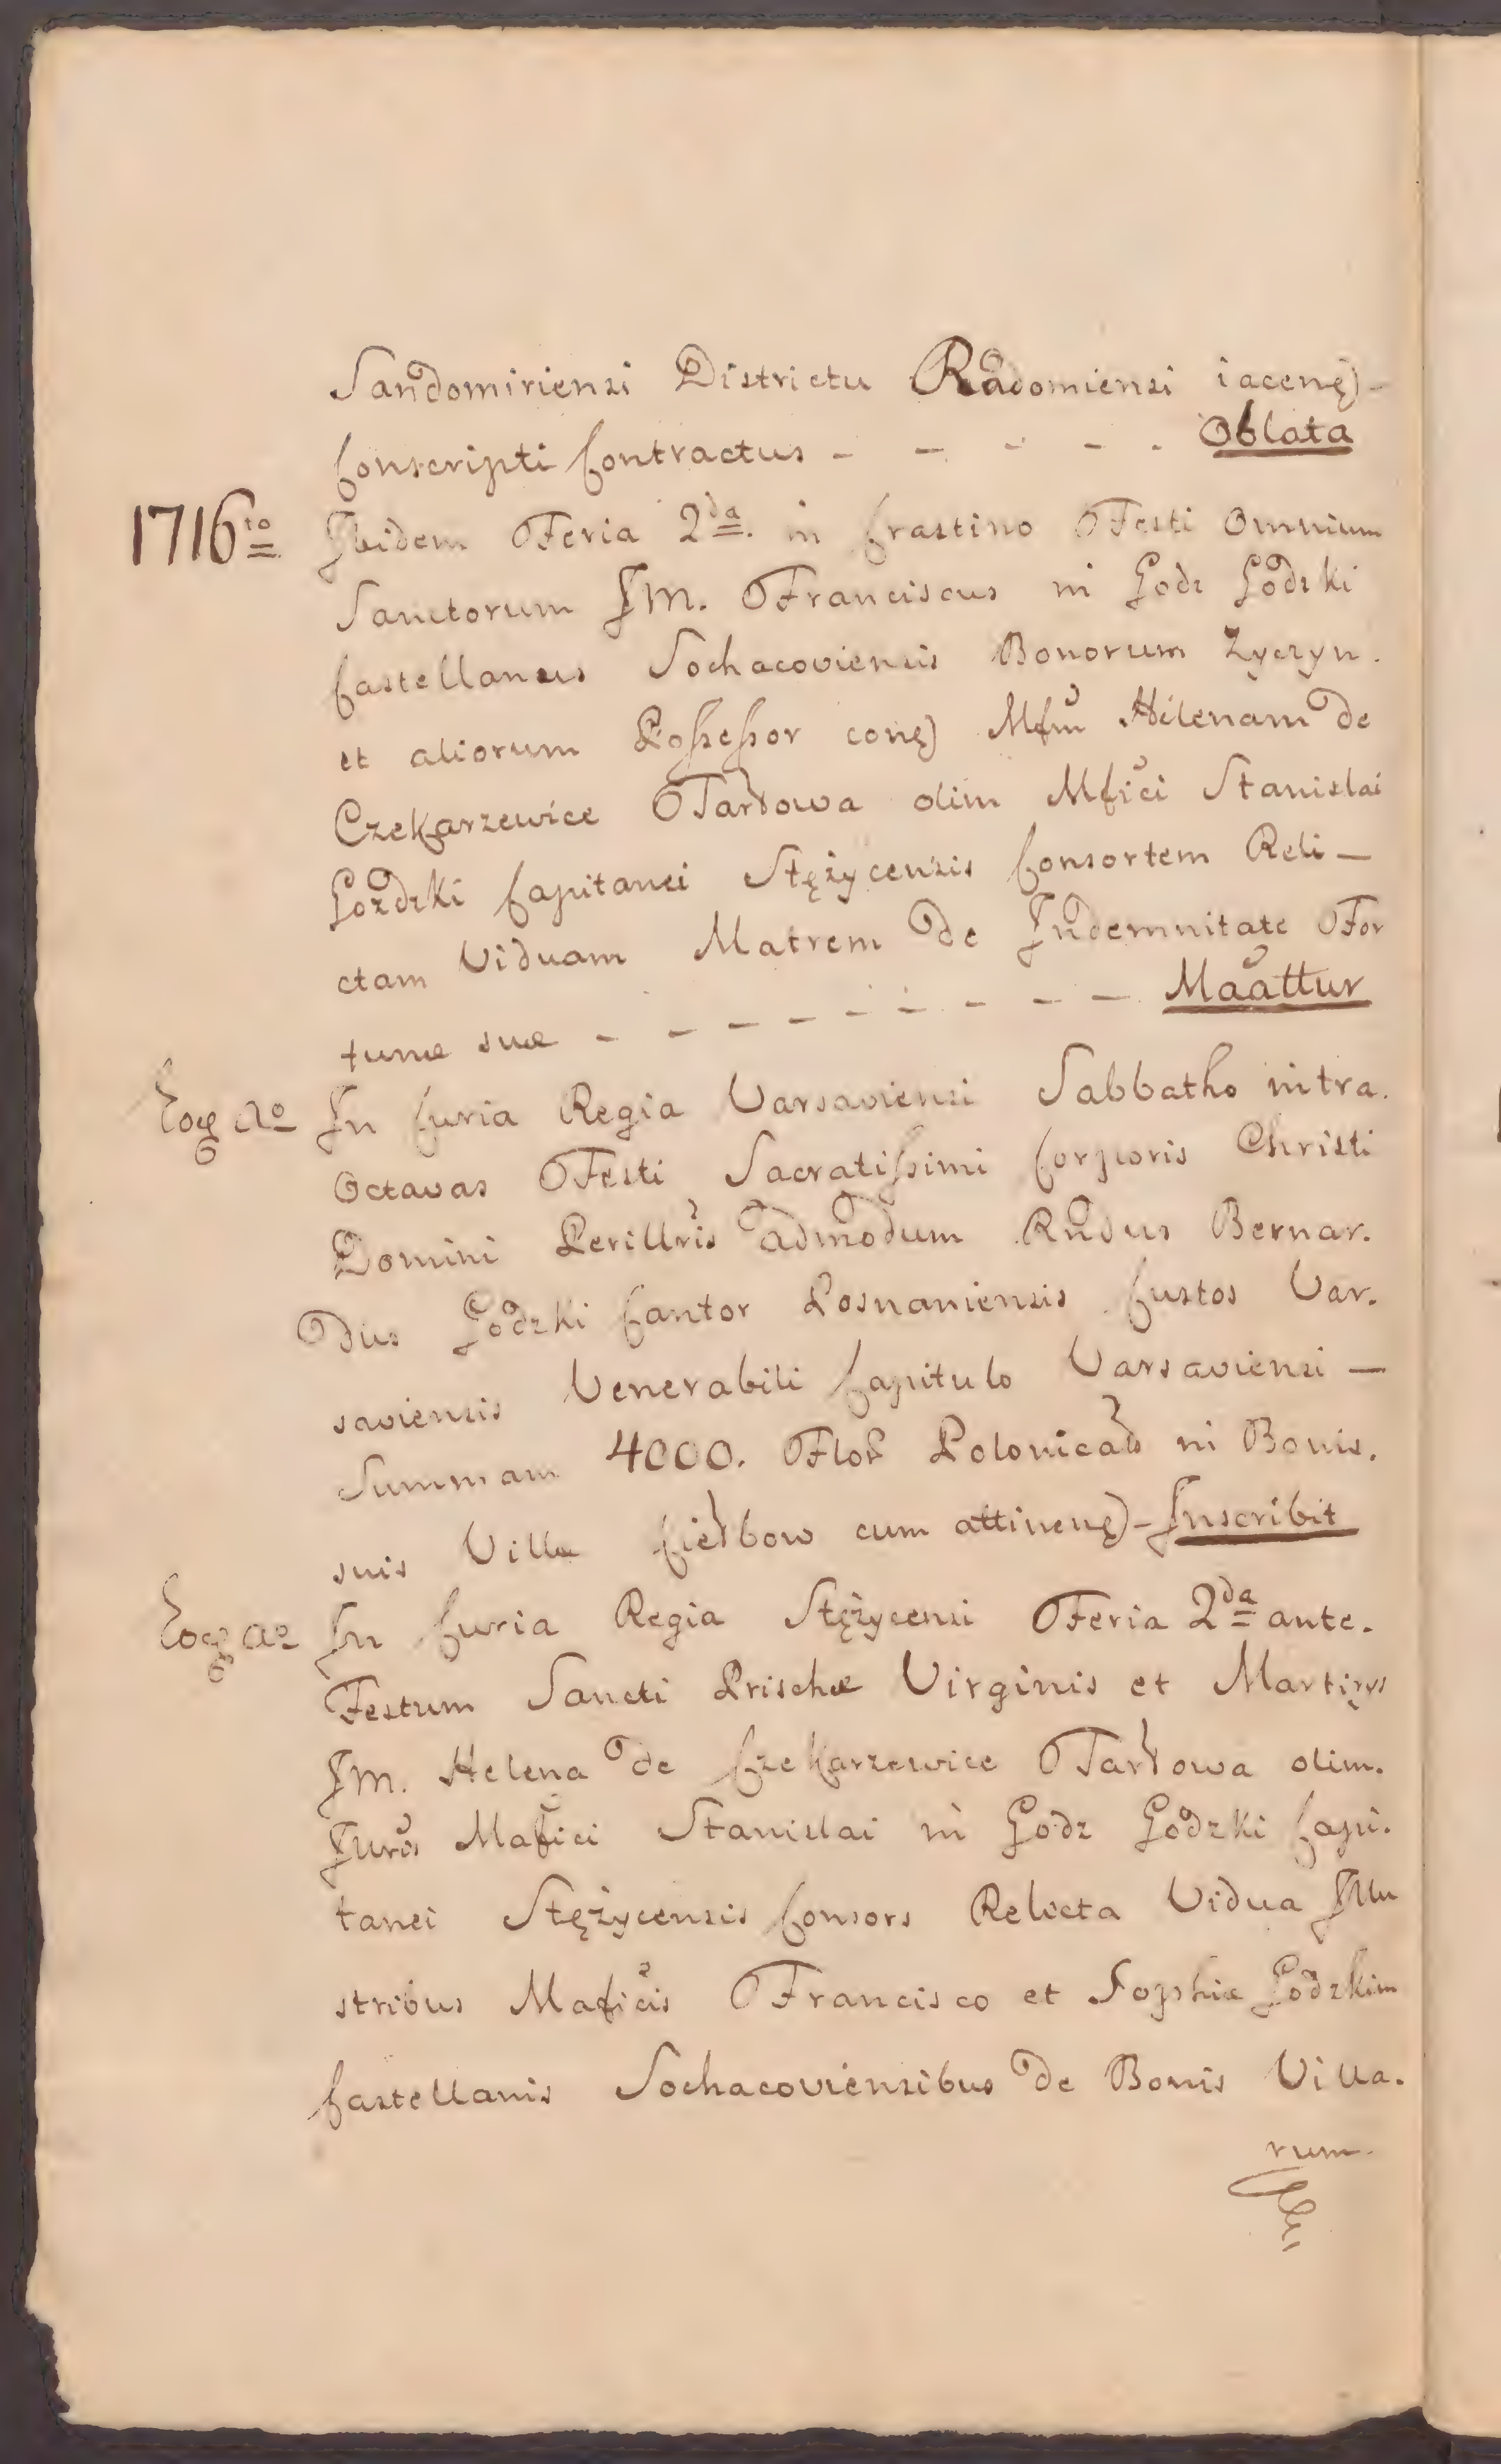 Sandomiriensi Districtu Radomiensi iacenę)-
Conscripti Contractus - - - - . Oblata
1716to Ibidem Feria 2da. in Crastino Festi Omnium
Sanctorum IM. Franciscus in Godz Godzki
Castellanus Sochacoviensis Bonorum Życzyn.
et aliorum Possessor conę) Mfm Hilenam de
Czekarzewice Tarłowa olim Mfici Stanislai
Gozdzki Capitanei Stężycensis Consortem Reli-
ctam Viduam Matrem de Indemnitate For
tunæ suæ - - - - - - - - - Maattur
Eoq Ao In Curia Regia Varsaviensi Sabbatho intra.
Octavas Festi Sacratissimi Corporis Christi
Domini Perillris admodum Rndus Bernar.
dus Godzki Cantor Posnaniensis Custos Var.
saviensis Venerabili Capitulo Varsaviensi -
Summam 4000. Flor Polonical in Bonis.
suis Villæ Ciełbow cum attinenę)- Inscribit
Eoq ao In Curia Regia Stężycensi Feria 2da ante.
Festum Sancti Prischæ Virginis et Martirys
IM. Helena de Czekarzewice Tarłowa olim.
Iuris Mafici Stanislai in Godz Godzki Capi.
tanei Stężycensis Consors Relicta Vidua Illu
stribus Maficis Francisco et Sophiæ Godzkim
Castellanis Sochacoviensibus de Bonis Villa.
rum.